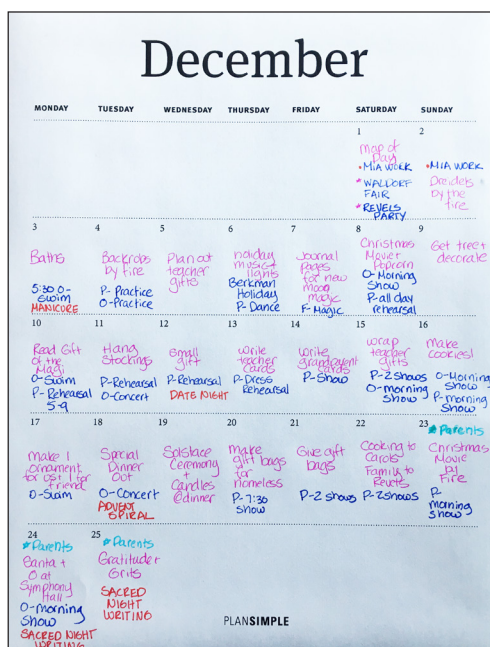 December
MONDAY TUESDAY WEDNESDAY THURSDAY FRIDAY SATURDAY SUNDAY
1
map of
Day
• MIA WORK
* WALDORF
FAIR
* REVELS
PARTY
2
• MIA WORK
Dreidels
by the
fire
3
Baths
5:30 O-
Swim
MANICURE
4
Backrubs
by fire
P- Practice
O- Practice
5
Plan out
teacher
gifts
6
holiday
music +
lights
Berkman
Holiday
P- Dance
7
Journal
Pages
for new
moon
magic
F- Magic
8
Christmas
Movie +
Popcorn
O- Morning
Show
P- all day
rehearsal
9
Get tree +
decorate
10
Read Gift
of the
Magi
O- Swim
P- Rehearsal
5-9
11
Hang
Stockings
P- Rehearsal
O- Concert
12
small
gift
P- Rehearsal
DATE NIGHT
13
write
teacher
cards
P- Dress
Rehearsal
14
write
grandparent
cards
P- Show
15
wrap
teacher
gifts
P- 2 shows
O- morning
show
16
make
cookies!
O- Morning
Show
P- morning
show
17
make 1
ornament
for
friend
O- Swim
18
Special
Dinner
Out
O- Concert
ADVENT
SPIRAL
19
Solstace
Ceremony
+
Candles
@ dinner
20
make
gift bags
for
homeless
P- 7:30
show
21
Give gift
bags
P- 2 shows
22
Cooking to
Carols
Family to
Revels
P- 2 shows
23
* Parents
Christmas
Movie
by
Fire
P
morning
show
24
* Parents
Santa +
O at
Symphony
Hall
O- morning
Show
SACRED NIGHT
WRITING
25
* Parents
Gratitude +
Grits
SACRED
NIGHT
WRITING
PLANSIMPLE